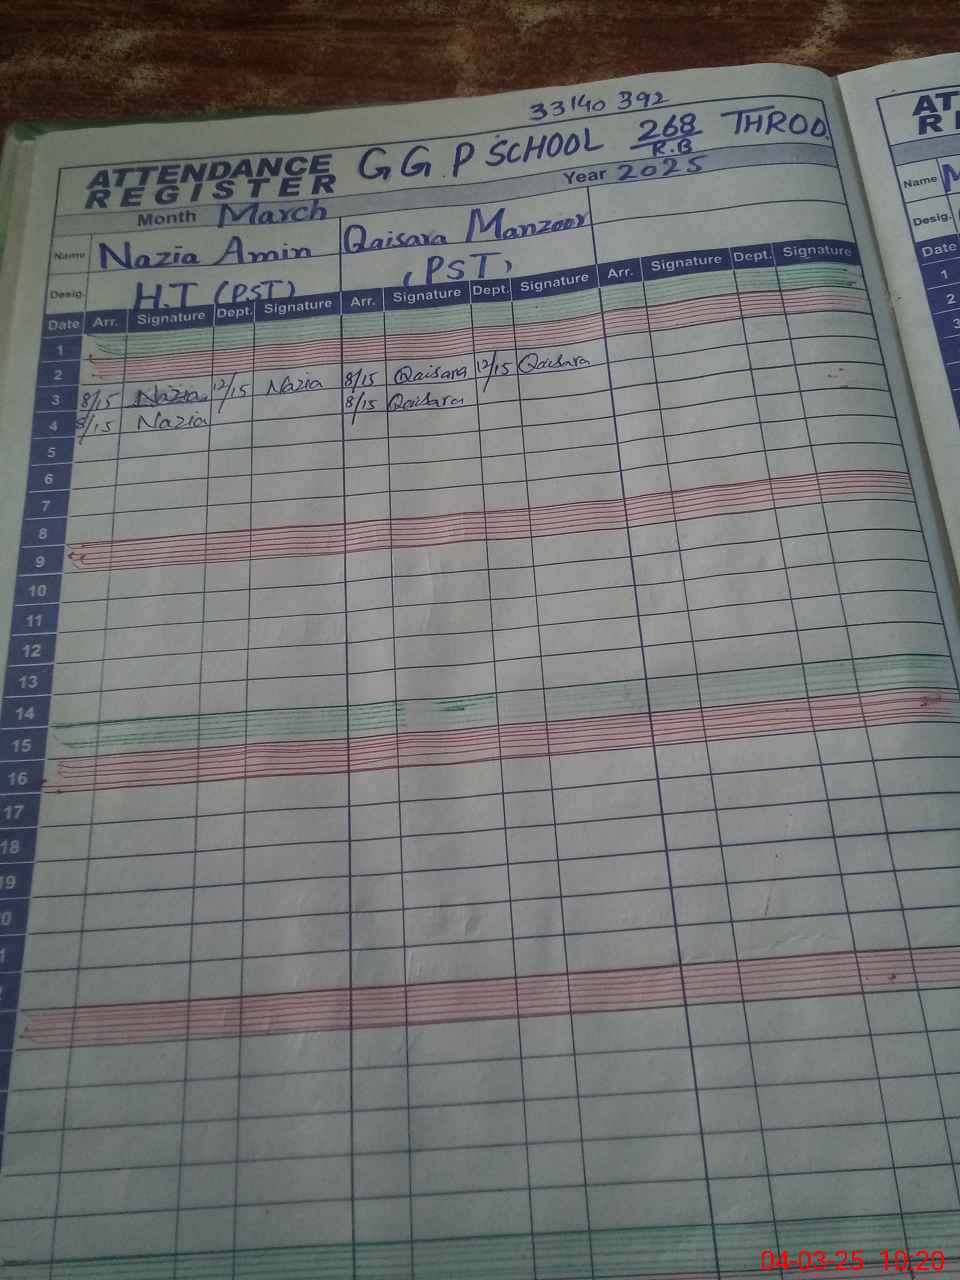 33140392
ATTENDANCE REGISTER G G P SCHOOL 268/R.B THROO
Month March Year 2025
Name Nazia Amin Qaisara Manzoor
Desig. H.T (PST) (PST)
Date Arr. Signature Dept. Signature Arr. Signature Dept. Signature Arr. Signature Dept. Signature
1
2
3 8/15 Nazia 12/15 Nazia 8/15 Qaisara 12/15 Qaisara
4 8/15 Nazia 8/15 Qaisara
5
6
7
8
9
10
11
12
13
14
15
16
17
18
19
0
1
AT
RE
Name M
Desig.
Date
1
2
3
04-03-25 10:20